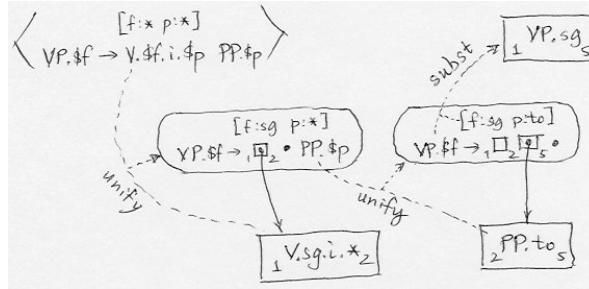 [f:* p:*]
VP.$f → V.$f.i.$p PP.$p
subst
1 VP.sg 5
[f:sg p:*]
VP.$f → 1 2 • PP.$p
unify
[f:sg p:to]
VP.$f → 1 2 5 •
unify
1 V.sg.i.* 2
2 PP.to 5